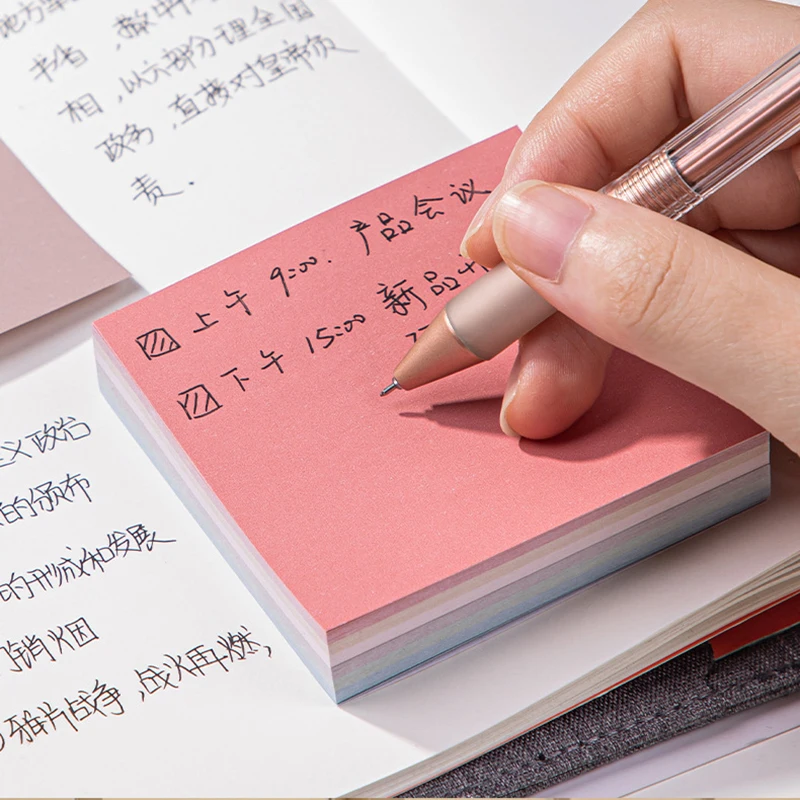 地方
书省，
相，以六部分理全国
政务，直接对皇帝负
责.
上午 9:00: 产品会议
下午 15:00 新品
义政治
的颁布
的形成和发展
销烟
鸦片战争，战火再燃，